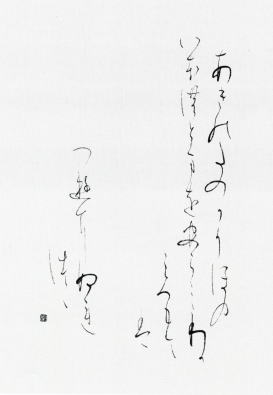 あきのたのかりほの
いほ濃とまをあらみわか
ころもて
は
つ遊にぬれ
つゝ